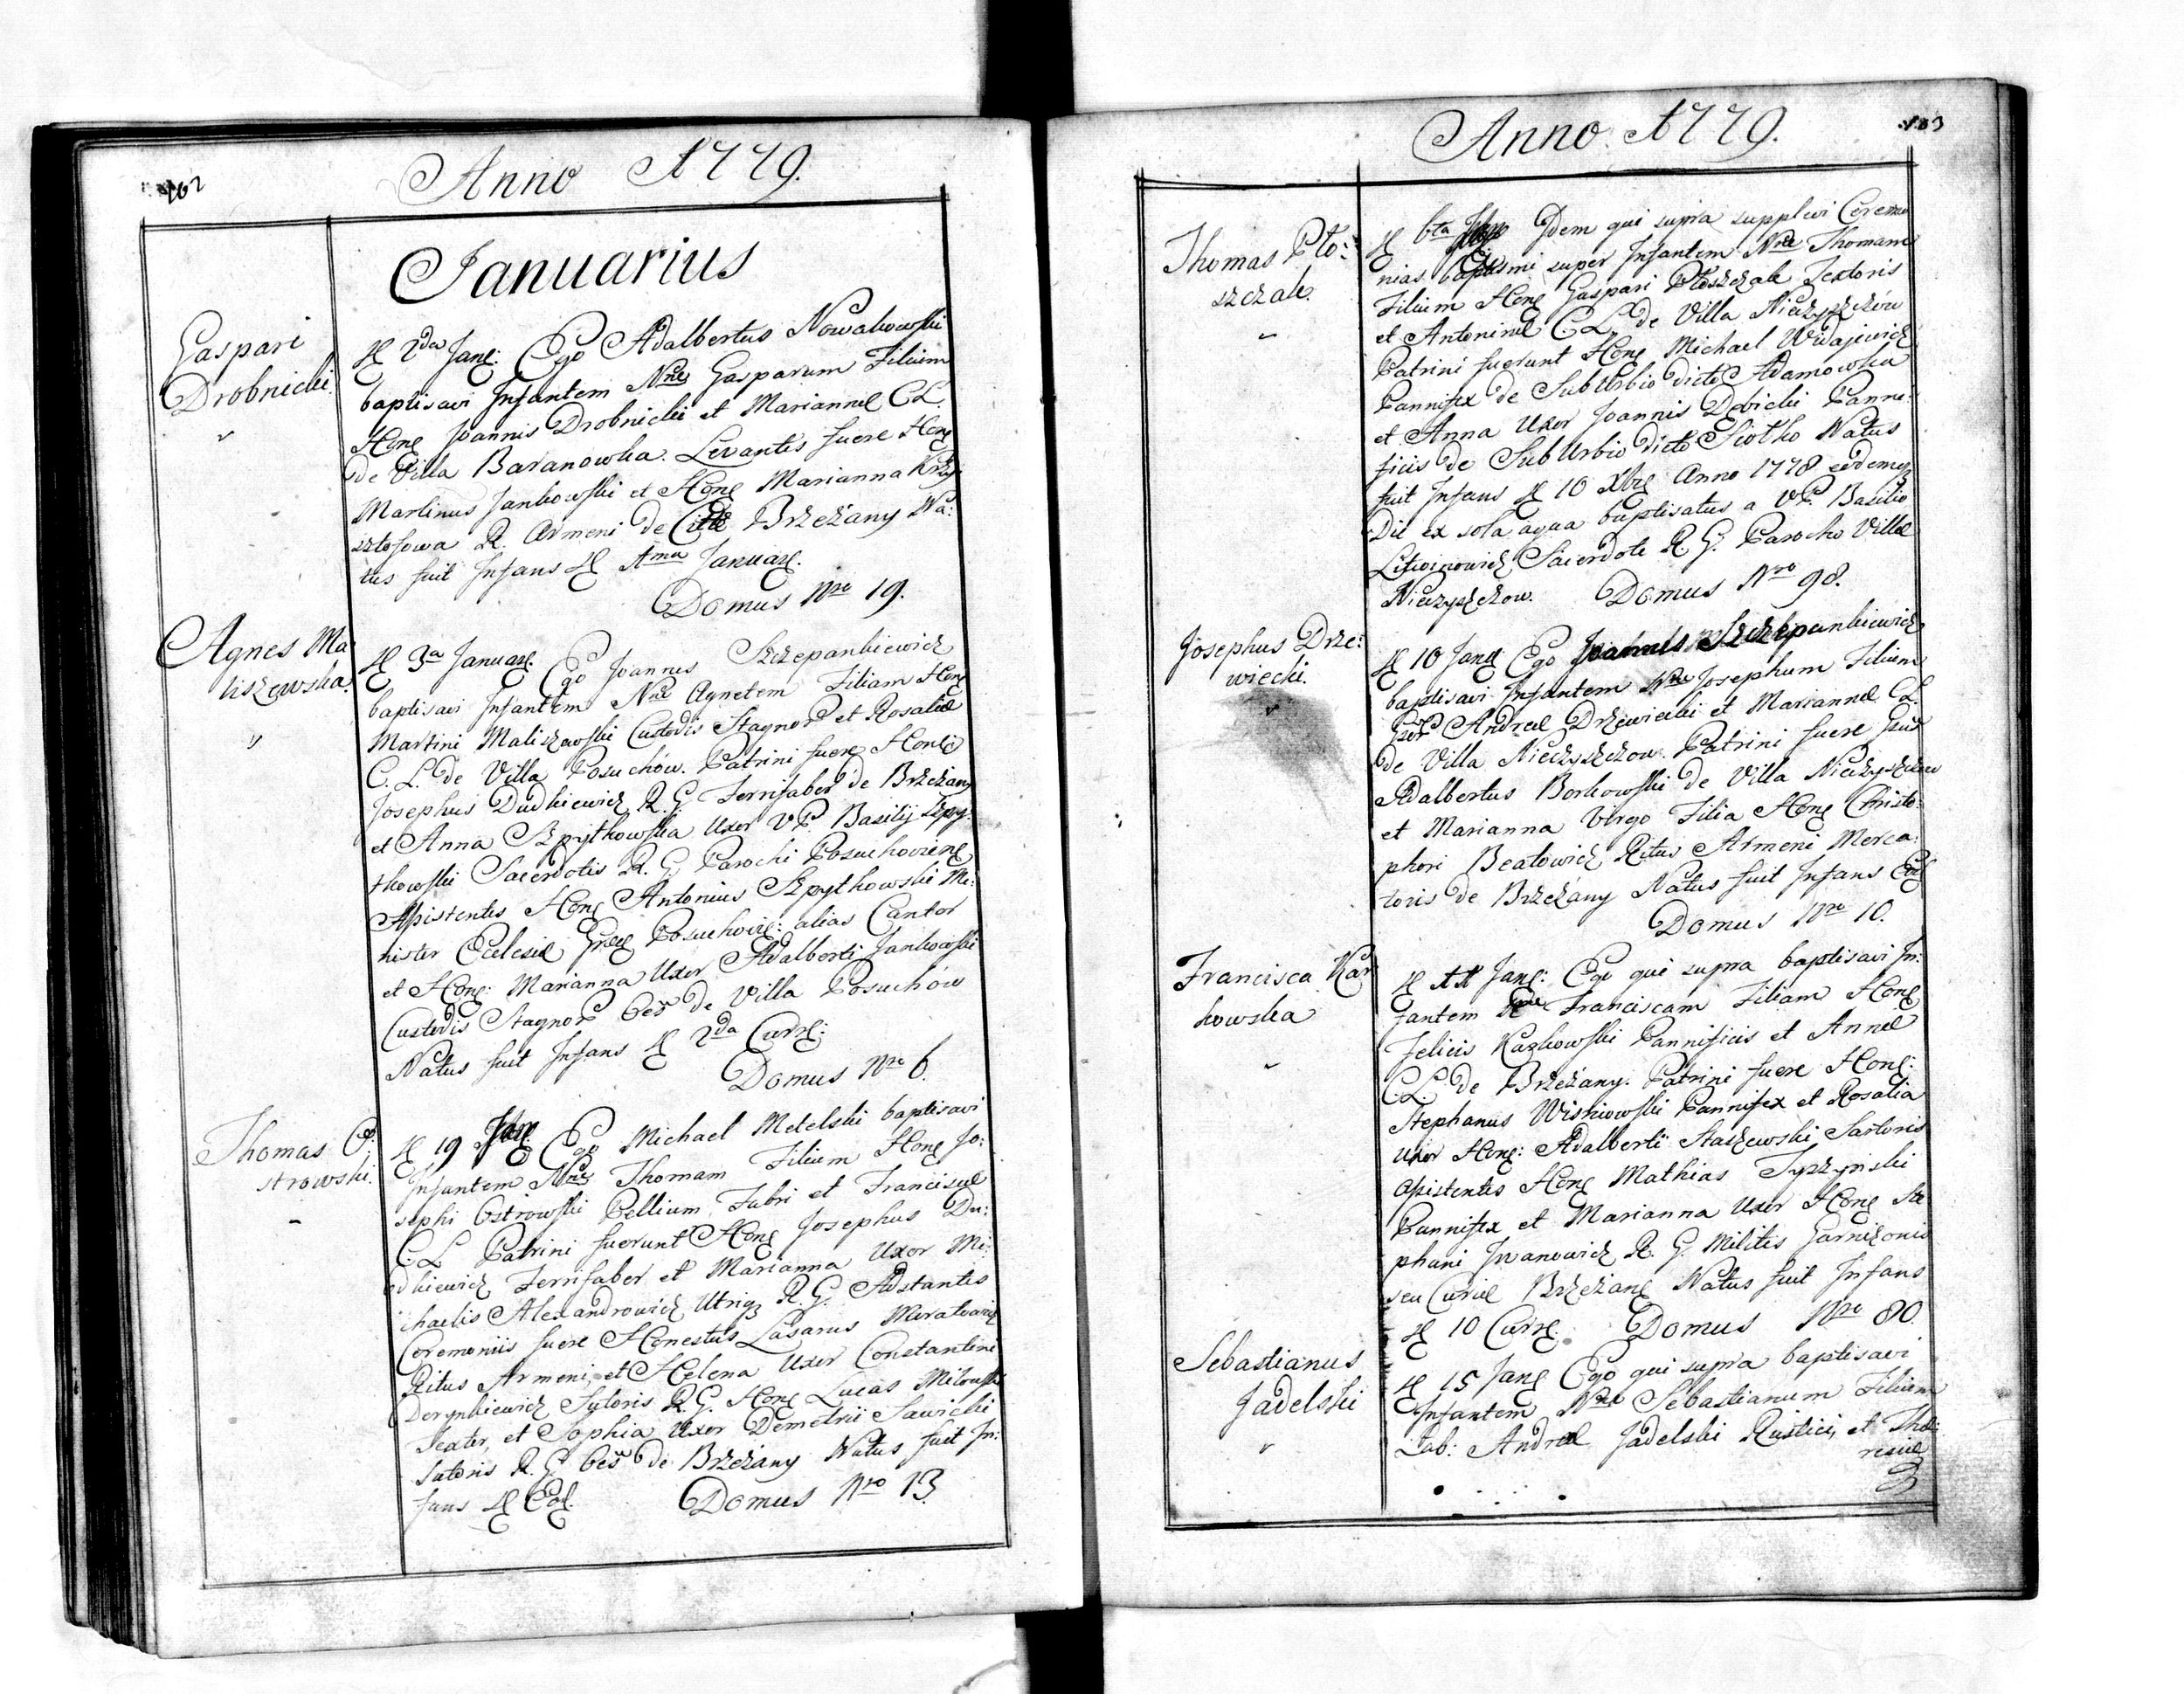 102
Anno 1779.
Januarius
Gaspari
Drobnicki.
D 2da Jan: Ego Adalbertus Nowakowski
baptisavi Infantem Nne Gasparum Filium
Hon Joannis Drobnicki et Mariannæ C.L.
de Villa Baranowka. Levantes fuere Hon
Martinus Jankowski et Hon Marianna Krzy
sztofowa R. Armeni de Citte Brzeżany Na:
tus fuit Infans D 1ma Januar.
Domus Nro 19.
Agnes Ma
liszewska.
D 3a Januar. Ego Joannes Szczepankiewicz
baptisavi Infantem Nne Agnetem Filiam Hon
Martini Maliszewski Custodis Stagnor et Rosaliæ
C. L. de Villa Posuchow. Patrini fuere Honti
Josephus Dudkiewicz R. G. Ferrifaber de Brzeżany
et Anna Szpytkowska Uxor V.P. Basilij Szpy:
tkowski Sacerdotis R. G. Parochi Posuchoviens
Assistentes Hon Antonius Szpytkowski Mi:
nister Ecclesiæ Græc Posuchovie: alias Cantor
et Hon: Marianna Uxor Adalberti Jankowski
Custodis Stagnor oes de Villa Posuchów
Natus fuit Infans D 2da Curr:
Domus Nro 6.
Thomas O:
strowski.
D 19 Jan Ego Michael Medelski baptisavi
Infantem Nne Thomam Filium Hon Jo:
sephi Ostrowski Pellium Fabri et Franciscæ
C. L Patrini fuerunt Hon Josephus Du:
dkiewicz Ferrifaber et Marianna Uxor Mi:
chaelis Alexandrowicz Utriq R. G. Adstantes
Ceremoniis fuere Honestus Lasarus Muratowicz
Ritus Armeni, et Helena Uxor Constantini
Derynkiewicz Sutoris R. G. Hon Lucas Milowski
Textor, et Sophia Uxor Demetrii Sawicki
Sutoris R. G. oes de Brzeżany Natus fuit In:
fans D Eod.
Domus Nro 13
103
Anno 1779.
Thomas Pło:
szczak.
D 6ta Idem qui supra supplevi Ceremo
nias baptismi super Infantem Nne Thomam
Filium Hon Gaspari Płoszczak Textoris
et Antoninæ C. L. de Villa Nieczyszczów
Patrini fuerunt Hon Michael Widajewicz
Pannifex de SubUrbio dicto Adamowka
et Anna Uxor Joannis Dębicki Panni:
ficis de SubUrbio dicto Siołko Natus
fuit Infans D 10 Xbr Anno 1778 eodemq
Die ex sola aqua baptisatus a V.P. Basilio
Litwinowicz Sacerdote R G. Parocho Villæ
Nieczyszczow. Domus Nro 98.
Josephus Drze:
wiecki.
D 10 Jan Ego Joannes Szczepankiewicz
baptisavi Infantem Nne Josephum Filium
Andreæ Drzewiecki et Mariannæ C.L.
de Villa Nieczyszczow. Patrini fuere
Adalbertus Borkowski de Villa Nieczyszczow
et Marianna Virgo Filia Hon Christo:
phori Beatowicz Ritus Armeni Merca:
toris de Brzeżany Natus fuit Infans Eod
Domus Nro 10.
Francisca Kar
kowska
D 11 Jan: Ego qui supra baptisavi In:
fantem Nne Franciscam Filiam Hon
Felicis Karkowski Pannificis et Annæ
C. L. de Brzeżany. Patrini fuere Hon:
Stephanus Wisniowski Pannifex et Rosalia
Uxor Hon: Adalberti Staszewski Sartoris
Assistentes Hon Mathias Typzynski
Pannifex et Marianna Uxor Hon Ste
phani Iwanowicz R. G. Militis Garnizonis
seu Curiæ Brzeżan Natus fuit Infans
D 10 Curr. Domus Nro 80.
Sebastianus
Jadelski
D 15 Jan Ego qui supra baptisavi
Infantem Nne Sebastianum Filium
Lab: Andreæ Jadelski Rustici, et The:
resiæ